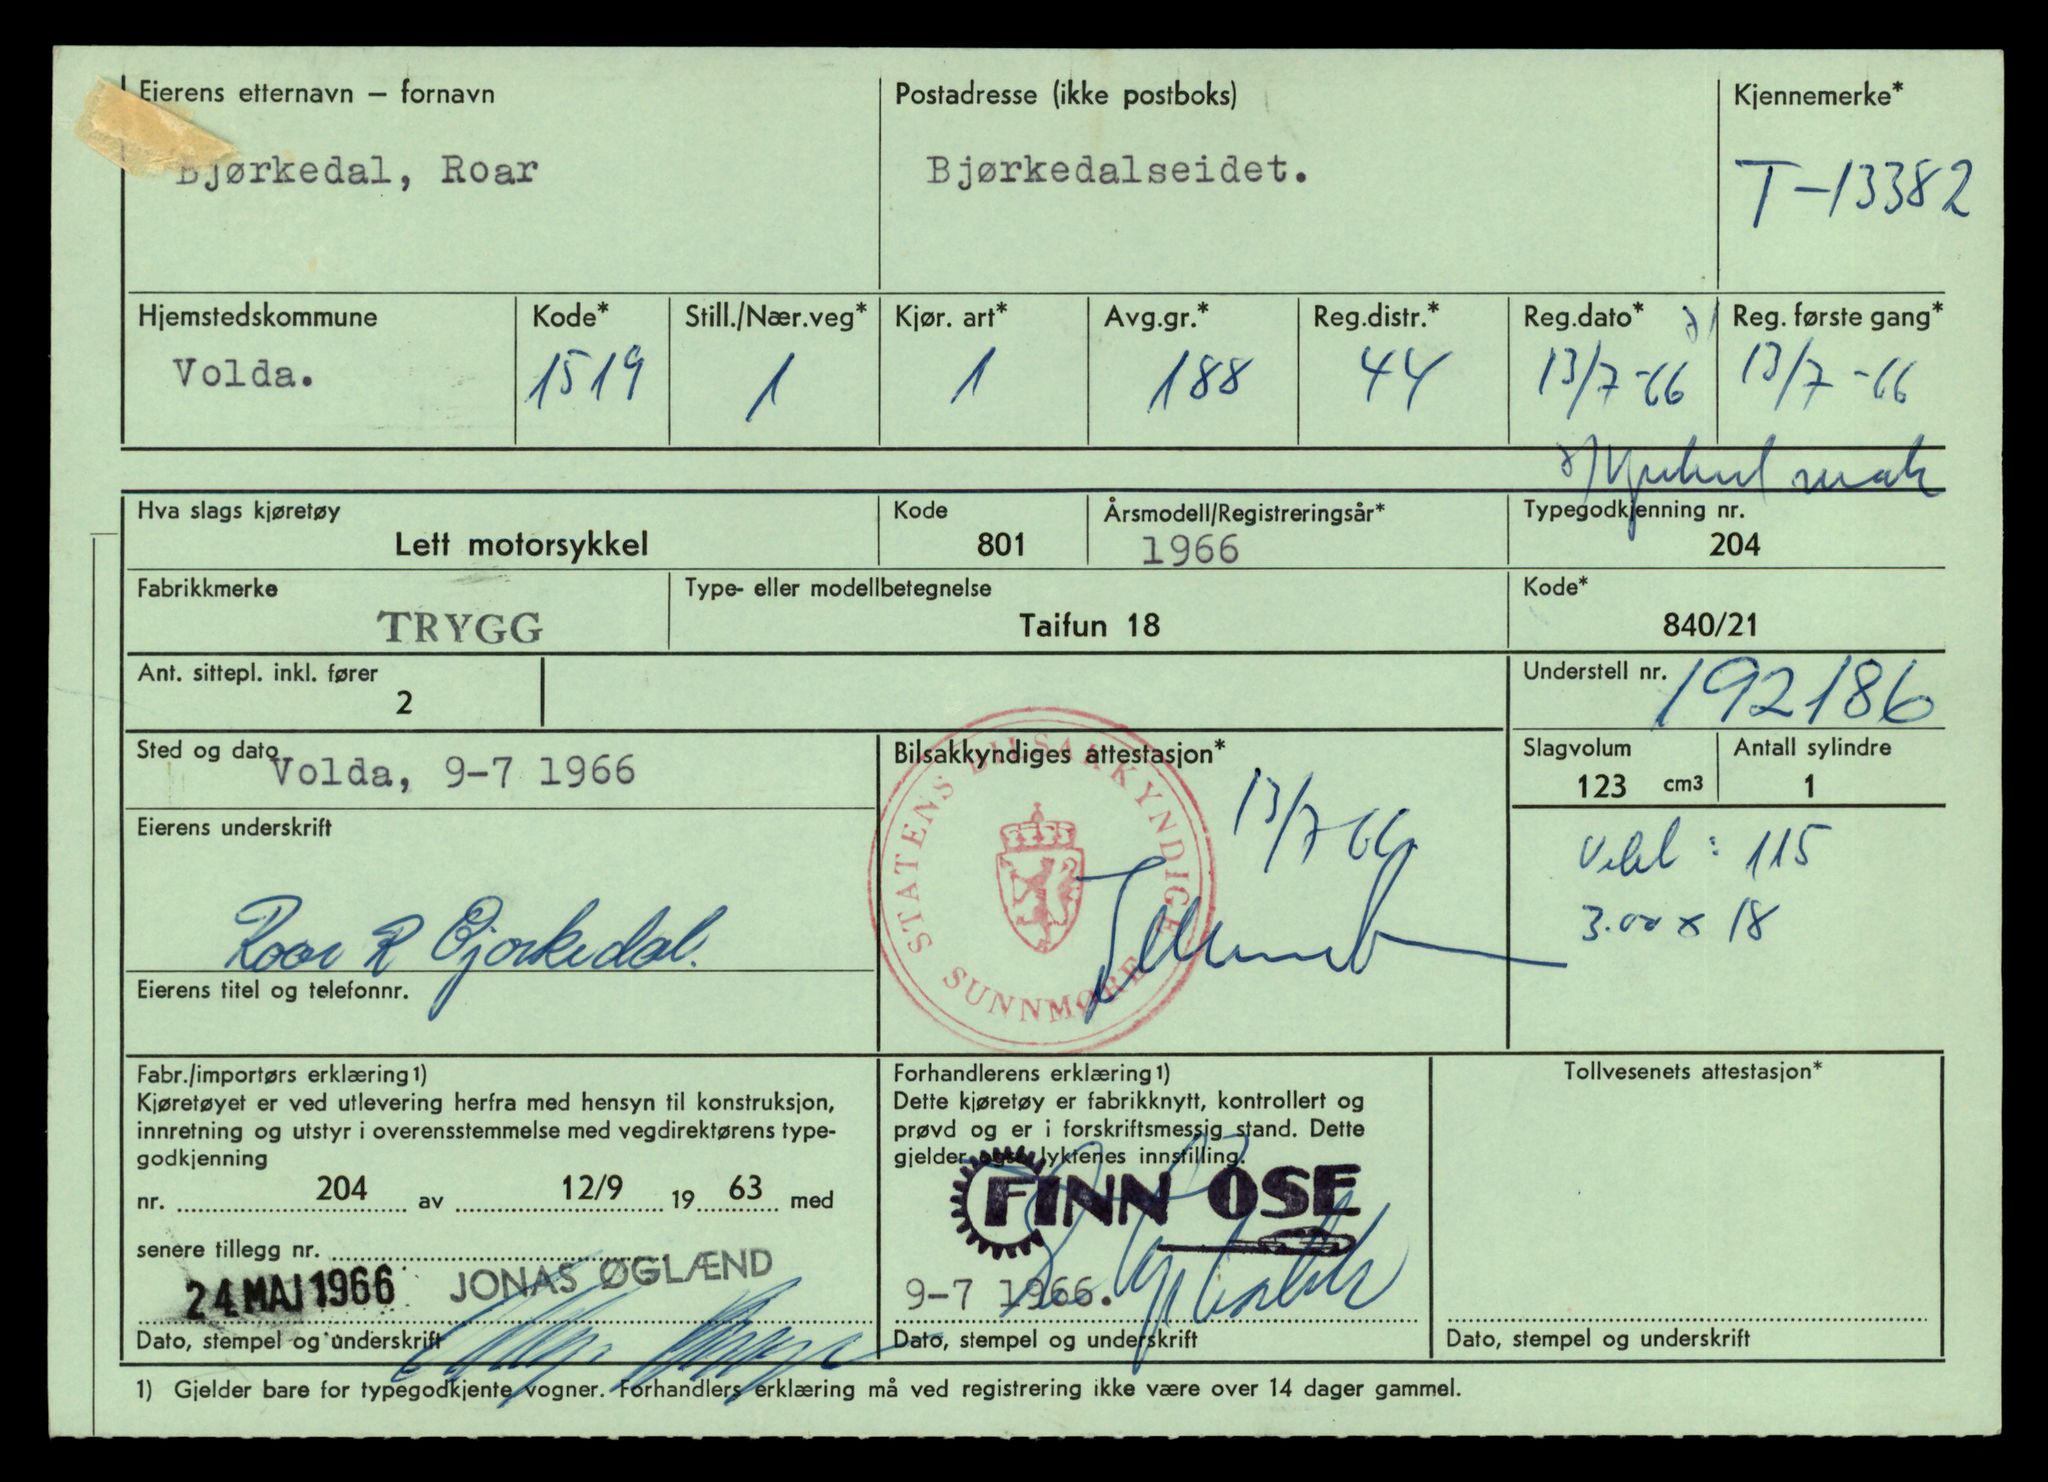 Eierens etternavn – fornavn
Bjørkedal, Roar
Postadresse (ikke postboks)
Bjørkedalseidet.
Kjennemerke*
T-13382
Hjemstedskommune
Volda.
Kode*
1519
Still./Nær.veg*
1
Kjør. art*
1
Avg.gr.*
188
Reg.distr.*
44
Reg.dato*
13/7-66
Reg. første gang*
13/7-66
Hva slags kjøretøy
Lett motorsykkel
Kode
801
Årsmodell/Registreringsår*
1966
Typegodkjenning nr.
204
Fabrikkmerke
TRYGG
Type- eller modellbetegnelse
Taifun 18
Kode*
840/21
Ant. sittepl. inkl. fører
2
Understell nr.
192186
Slagvolum
123 cm3
Antall sylindre
1
115
3.00 x 18
Sted og dato
Volda, 9-7 1966
Eierens underskrift
Roar R Bjørkedal.
Eierens titel og telefonnr.
Bilsakkyndiges attestasjon*
13/7-66
STATENS BILSAKKYNDIGE
SUNNMØRE
Fabr./importørs erklæring1)
Kjøretøyet er ved utlevering herfra med hensyn til konstruksjon,
innretning og utstyr i overensstemmelse med vegdirektørens type-
godkjenning
nr. 204 av 12/9 19 63 med
senere tillegg nr.
24 MAJ 1966 JONAS ØGLÆND
Dato, stempel og underskrift
Forhandlerens erklæring1)
Dette kjøretøy er fabrikknytt, kontrollert og
prøvd og er i forskriftsmessig stand. Dette
gjelder også lyktenes innstilling.
FINN OSE
9-7 1966.
Dato, stempel og underskrift
Tollvesenets attestasjon*
Dato, stempel og underskrift
1) Gjelder bare for typegodkjente vogner. Forhandlers erklæring må ved registrering ikke være over 14 dager gammel.